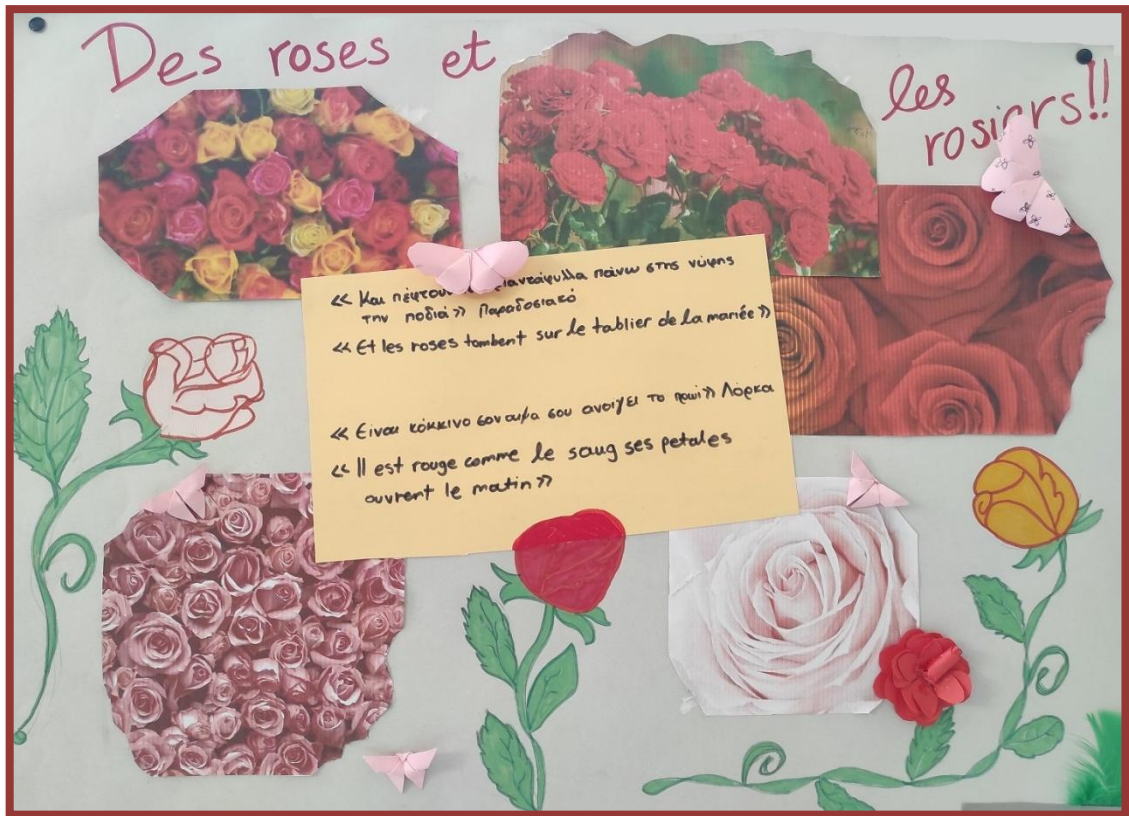 Des roses et
les
rosiers!!
<< Και πέφτουν τριαντάφυλλα πάνω στης νύφης
την ποδιά >> Παραδοσιακό
<< Et les roses tombent sur le tablier de la mariée >>
<< Είναι κόκκινο σαν αιμα σου ανοιγει το πρωί >> Λόρκα
<< Il est rouge comme le sang ses petales
ouvrent le matin >>